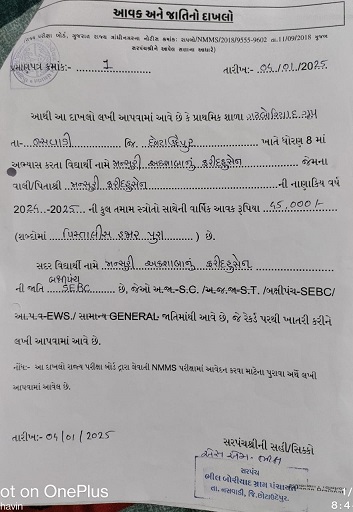 આવક અને જાતિનો દાખલો
રાજ્ય પરીક્ષા બોર્ડ, ગુજરાત રાજ્ય ગાંધીનગરના નોટીસ ક્રમાંક: રાપબો/NMMS/2018/9555-9602 તા.11/09/2018 મુજબ
સરપંચશ્રીને આવેલ સત્તાના આધારે)
પ્રમાણપત્ર ક્રમાંક:- 1 તારીખ:- 04/01/2025
આથી આ દાખલો લખી આપવામાં આવે છે કે પ્રાથમિક શાળા
તા- નસવાડી જિ. છોટાઉદેપુર ખાતે ધોરણ 8 માં
અભ્યાસ કરતા વિદ્યાર્થી નામે મન્સુરી અકશાબાનું ફરીદહુસેન જેમના
વાલી/પિતાશ્રી મન્સુરી ફરીદહુસેન ની નાણાકિય વર્ષ
2024-2025 ની કુલ તમામ સ્ત્રોતો સાથેની વાર્ષિક આવક રૂપિયા 45,000/-
(શબ્દોમાં પિસ્તાલીસ હજાર પુરા) છે.
સદર વિદ્યાર્થી નામે મન્સુરી અકશાબાનું ફરીદહુસેન
બક્ષીપંચ
ની જાતિ SEBC છે, જેઓ અ.જા.-S.C. /અ.જ.જા-S.T. /બક્ષીપંચ-SEBC/
આ.પ.વ-EWS./ સામાન્ય-GENERAL જાતિમાંથી આવે છે, જે રેકર્ડ પરથી ખાતરી કરીને
લખી આપવામાં આવે છે.
નોંધ:- આ દાખલો રાજ્ય પરીક્ષા બોર્ડ દ્વારા લેવાની NMMS પરીક્ષામાં આવેદન કરવા માટેના પુરાવા અર્થે લખી
આપવામાં આવેલ છે.
તારીખ:- 04/01/2025
સરપંચશ્રીની સહી/સિક્કો
સરપંચ
ભીલ બોરીયાદ ગ્રામ પંચાયત
તા. નસવાડી, જિ.છોટાઉદેપુર.
ot on OnePlus
havin
1/
8:4